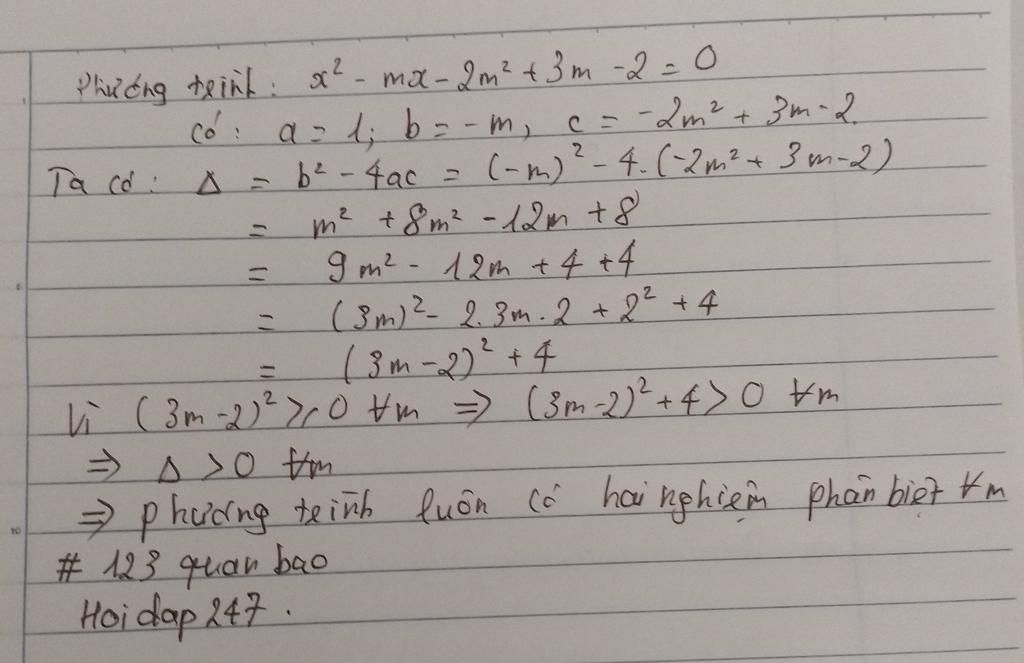 Phương trình: x² - mx - 2m² + 3m - 2 = 0
Có: a = 1; b = -m, c = -2m² + 3m - 2.
Ta có: Δ = b² - 4ac = (-m)² - 4.(-2m² + 3m - 2)
= m² + 8m² - 12m + 8
= 9m² - 12m + 4 + 4
= (3m)² - 2.3m.2 + 2² + 4
= (3m - 2)² + 4
Vì (3m - 2)² ≥ 0 ∀m ⇒ (3m - 2)² + 4 > 0 ∀m
⇒ Δ > 0 ∀m
⇒ phương trình luôn có hai nghiệm phân biệt ∀m
# 123 quan bao
Hoidap 247.